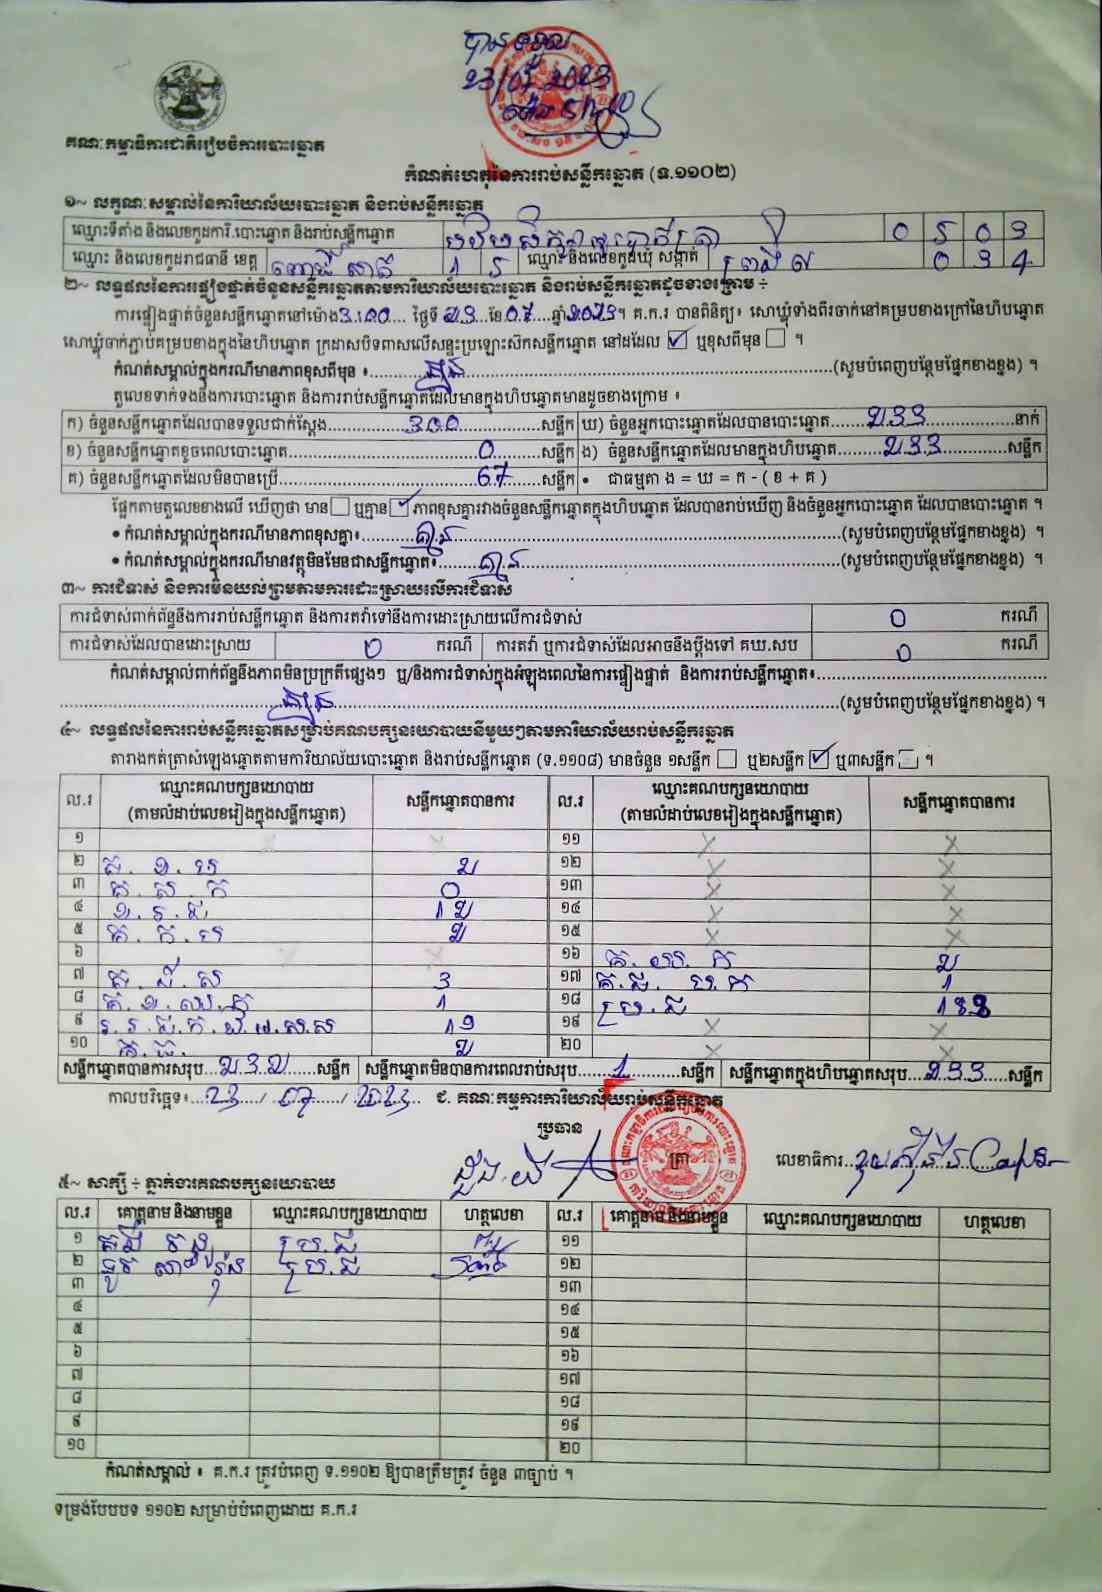 បានទទួល
23/07/2023
គណៈកម្មាធិការជាតិរៀបចំការបោះឆ្នោត
កំណត់ហេតុនៃការរាប់សន្លឹកឆ្នោត (ទ.១១០២)
១~ លក្ខណៈសម្គាល់នៃការិយាល័យបោះឆ្នោត និងរាប់សន្លឹកឆ្នោត
ឈ្មោះទីតាំង និងលេខកូដការិ.បោះឆ្នោត និងរាប់សន្លឹកឆ្នោត 0 5 0 3
ឈ្មោះ និងលេខកូដរាជធានី ខេត្ត ពោធិ៍សាត់ 1 5 ឈ្មោះ និងលេខកូដឃុំ សង្កាត់ 0 3 4
២~ លទ្ធផលនៃការផ្ទៀងផ្ទាត់ចំនួនសន្លឹកឆ្នោតតាមការិយាល័យបោះឆ្នោត និងរាប់សន្លឹកឆ្នោតដូចខាងក្រោម ÷
ការផ្ទៀងផ្ទាត់ចំនួនសន្លឹកឆ្នោតនៅម៉ោង 3:00 ថ្ងៃទី 23 ខែ 07 ឆ្នាំ 2023។ គ.ក.រ បានពិនិត្យ៖ សោឃ្លុំទាំងពីរចាក់នៅគម្របខាងក្រៅនៃហិបឆ្នោត
សោឃ្លុំចាក់ភ្ជាប់គម្របខាងក្នុងនៃហិបឆ្នោត ក្រដាសបិទពាសលើសន្ទះប្រឡោះសឹកសន្លឹកឆ្នោត នៅដដែល ☑ ឬខុសពីមុន ☐ ។
កំណត់សម្គាល់ក្នុងករណីមានភាពខុសពីមុន ៖ គ្មាន (សូមបំពេញបន្ថែមផ្នែកខាងខ្នង) ។
តួលេខទាក់ទងនឹងការបោះឆ្នោត និងការរាប់សន្លឹកឆ្នោតដែលមានក្នុងហិបឆ្នោតមានដូចខាងក្រោម ៖
ក) ចំនួនសន្លឹកឆ្នោតដែលបានទទួលជាក់ស្តែង 300 សន្លឹក ឃ) ចំនួនអ្នកបោះឆ្នោតដែលបានបោះឆ្នោត 233 នាក់
ខ) ចំនួនសន្លឹកឆ្នោតខូចពេលបោះឆ្នោត 0 សន្លឹក ង) ចំនួនសន្លឹកឆ្នោតដែលមានក្នុងហិបឆ្នោត 233 សន្លឹក
គ) ចំនួនសន្លឹកឆ្នោតដែលមិនបានប្រើ 67 សន្លឹក • ជាធម្មតា ង = ឃ = ក - ( ខ + គ )
ផ្អែកតាមតួលេខខាងលើ ឃើញថា មាន ☐ ឬគ្មាន ☑ ភាពខុសគ្នារវាងចំនួនសន្លឹកឆ្នោតក្នុងហិបឆ្នោត ដែលបានរាប់ឃើញ និងចំនួនអ្នកបោះឆ្នោត ដែលបានបោះឆ្នោត ។
• កំណត់សម្គាល់ក្នុងករណីមានភាពខុសគ្នា៖ គ្មាន (សូមបំពេញបន្ថែមផ្នែកខាងខ្នង) ។
• កំណត់សម្គាល់ក្នុងករណីមានវត្ថុមិនមែនជាសន្លឹកឆ្នោត៖ គ្មាន (សូមបំពេញបន្ថែមផ្នែកខាងខ្នង) ។
៣~ ការជំទាស់ និងការមិនយល់ព្រមតាមការដោះស្រាយលើការជំទាស់
ការជំទាស់ពាក់ព័ន្ធនឹងការរាប់សន្លឹកឆ្នោត និងការតវ៉ាទៅនឹងការដោះស្រាយលើការជំទាស់ 0 ករណី
ការជំទាស់ដែលបានដោះស្រាយ 0 ករណី ការតវ៉ា ឬការជំទាស់ដែលអាចនឹងប្តឹងទៅ គឃ.សប 0 ករណី
កំណត់សម្គាល់ពាក់ព័ន្ធនឹងភាពមិនប្រក្រតីផ្សេងៗ ឬ/និងការជំទាស់ក្នុងអំឡុងពេលនៃការផ្ទៀងផ្ទាត់ និងការរាប់សន្លឹកឆ្នោត៖
គ្មាន (សូមបំពេញបន្ថែមផ្នែកខាងខ្នង) ។
៤~ លទ្ធផលនៃការរាប់សន្លឹកឆ្នោតសម្រាប់គណបក្សនយោបាយនីមួយៗតាមការិយាល័យរាប់សន្លឹកឆ្នោត
តារាងកត់ត្រាសំឡេងឆ្នោតតាមការិយាល័យបោះឆ្នោត និងរាប់សន្លឹកឆ្នោត (ទ.១១០៨) មានចំនួន ១សន្លឹក ☐ ឬ២សន្លឹក ☑ ឬ៣សន្លឹក ☐ ។
ល.រ ឈ្មោះគណបក្សនយោបាយ សន្លឹកឆ្នោតបានការ ល.រ ឈ្មោះគណបក្សនយោបាយ សន្លឹកឆ្នោតបានការ
(តាមលំដាប់លេខរៀងក្នុងសន្លឹកឆ្នោត) (តាមលំដាប់លេខរៀងក្នុងសន្លឹកឆ្នោត)
១ × × ១១ × ×
២ 2 ១២ × ×
៣ 0 ១៣ × ×
៤ ខ.រ.ជ 12 ១៤ × ×
៥ 2 ១៥ × ×
៦ × × ១៦ 2
៧ 3 ១៧ 1
៨ 1 ១៨ ប្រ.ជ 188
៩ 19 ១៩ × ×
១០ 2 ២០ × ×
សន្លឹកឆ្នោតបានការសរុប 232 សន្លឹក សន្លឹកឆ្នោតមិនបានការពេលរាប់សរុប 1 សន្លឹក សន្លឹកឆ្នោតក្នុងហិបឆ្នោតសរុប 233 សន្លឹក
កាលបរិច្ឆេទ៖ 23 / 07 / 2023 ជ. គណៈកម្មការការិយាល័យរាប់សន្លឹកឆ្នោត
ប្រធាន
លេខាធិការ
៥~ សាក្សី ÷ ភ្នាក់ងារគណបក្សនយោបាយ
ល.រ គោត្តនាម និងនាមខ្លួន ឈ្មោះគណបក្សនយោបាយ ហត្ថលេខា ល.រ គោត្តនាម និងនាមខ្លួន ឈ្មោះគណបក្សនយោបាយ ហត្ថលេខា
១ ប្រ.ជ ១១
២ ប្រ.ជ ១២
៣ ១៣
៤ ១៤
៥ ១៥
៦ ១៦
៧ ១៧
៨ ១៨
៩ ១៩
១០ ២០
កំណត់សម្គាល់ ៖ គ.ក.រ ត្រូវបំពេញ ទ.១១០២ ឱ្យបានត្រឹមត្រូវ ចំនួន ៣ច្បាប់ ។
ទម្រង់បែបបទ ១១០២ សម្រាប់បំពេញដោយ គ.ក.រ